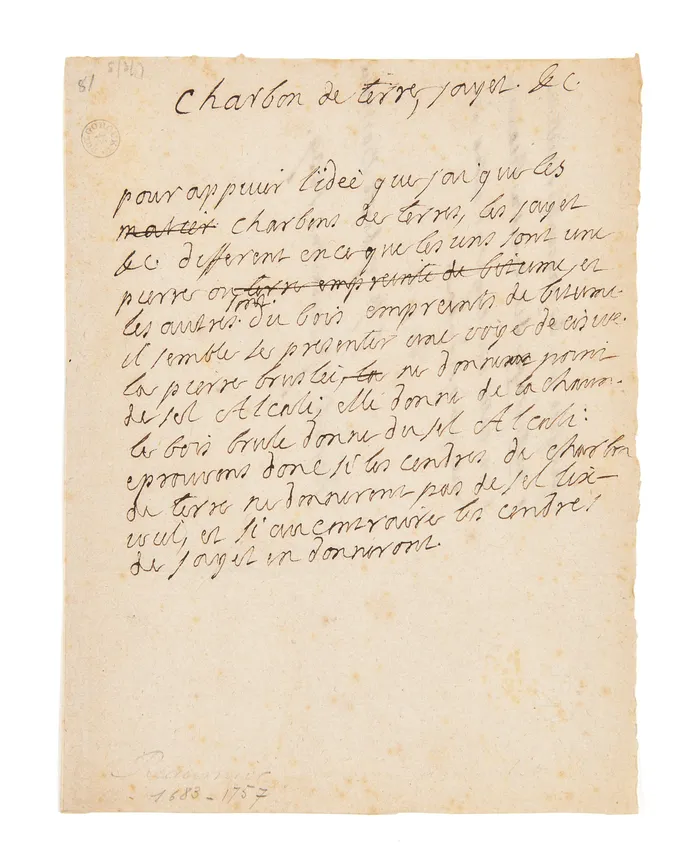 81
charbon de terre, jayet. &c.
pour appuier l'ideé que j'ai que les
matier charbons de terres, les jayet
&c. different en ce que les uns sont une
pierre ou terre empreinte de bitume, et
les autres sont du bois empreints de bitume.
il semble se presenter une voye decisive.
la pierre brusleé, la ne donne point
de sel Alcali; elle donne de la chaux.
le bois brule donne du sel Alcali:
eprouvons donc si les cendres de charbon
de terre ne donneront pas de sel lix-
iviel, et si au contraire les cendres
de jayet en donneront.
Reaumur
1683 - 1757